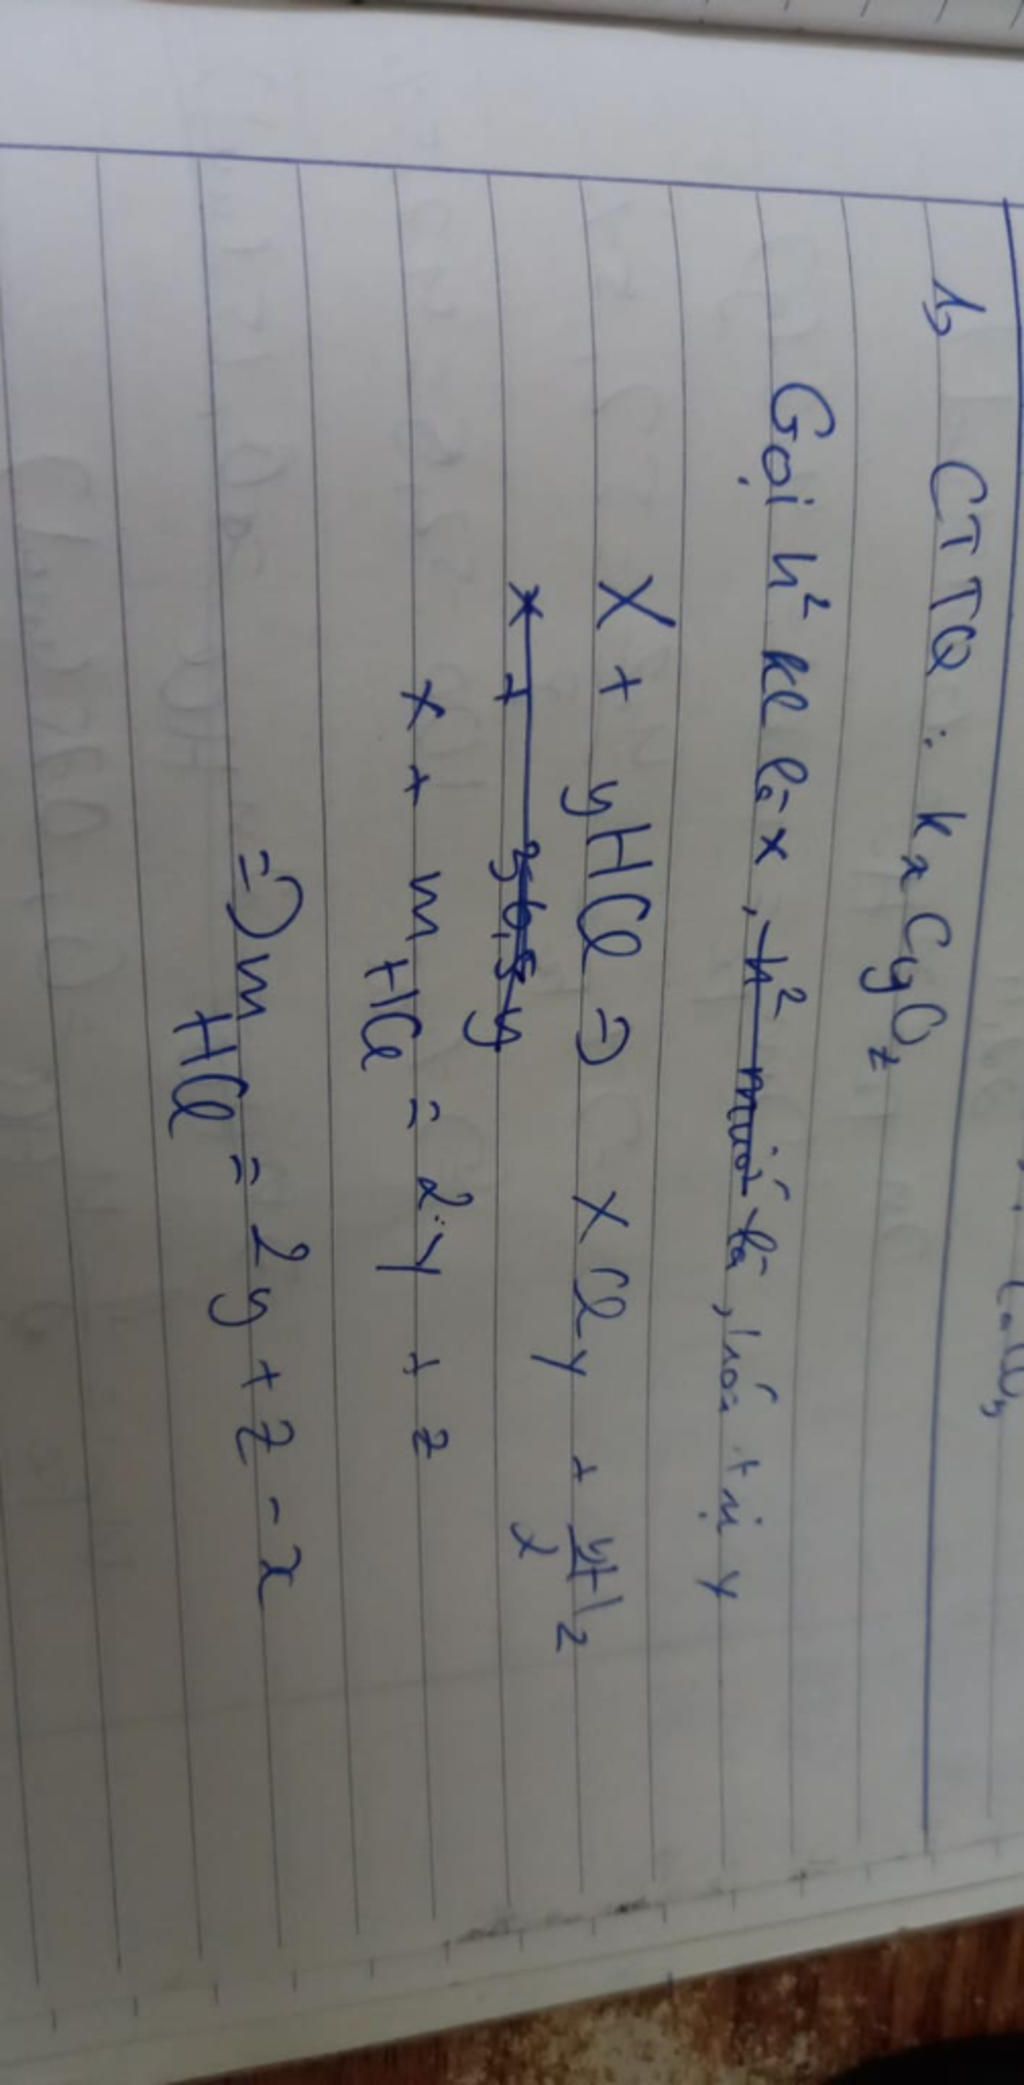 b CTTQ: KxCyOz
Gọi h² kl là x, h² muối là, hóa trị y
X + yHCl => XCly + y/2 H2
x + 36,5y
x + mHCl = 2.y + z
=> mHCl = 2y + z - x